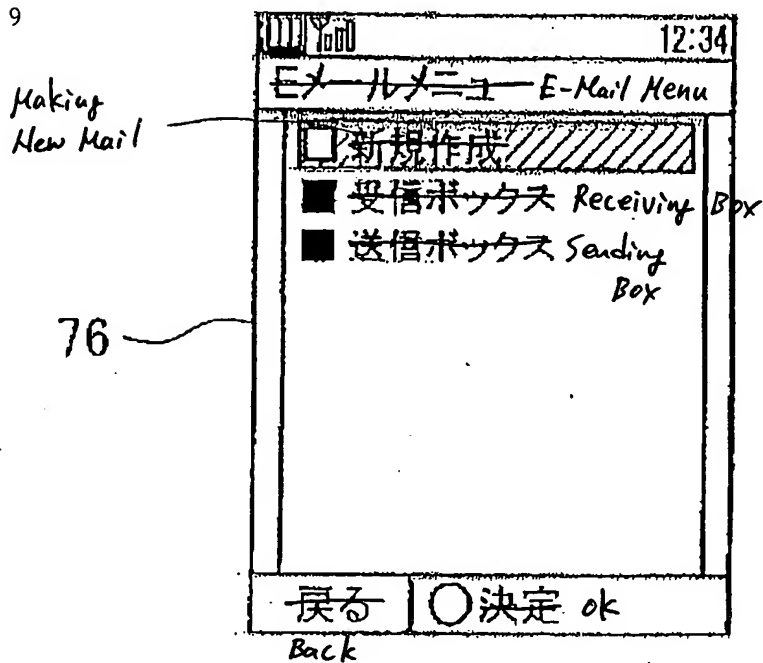 9
12:34
Eメールメニュー E-Mail Menu
Making
New Mail
新規作成
受信ボックス Receiving Box
送信ボックス Sending
Box
76
戻る ○決定 ok
Back